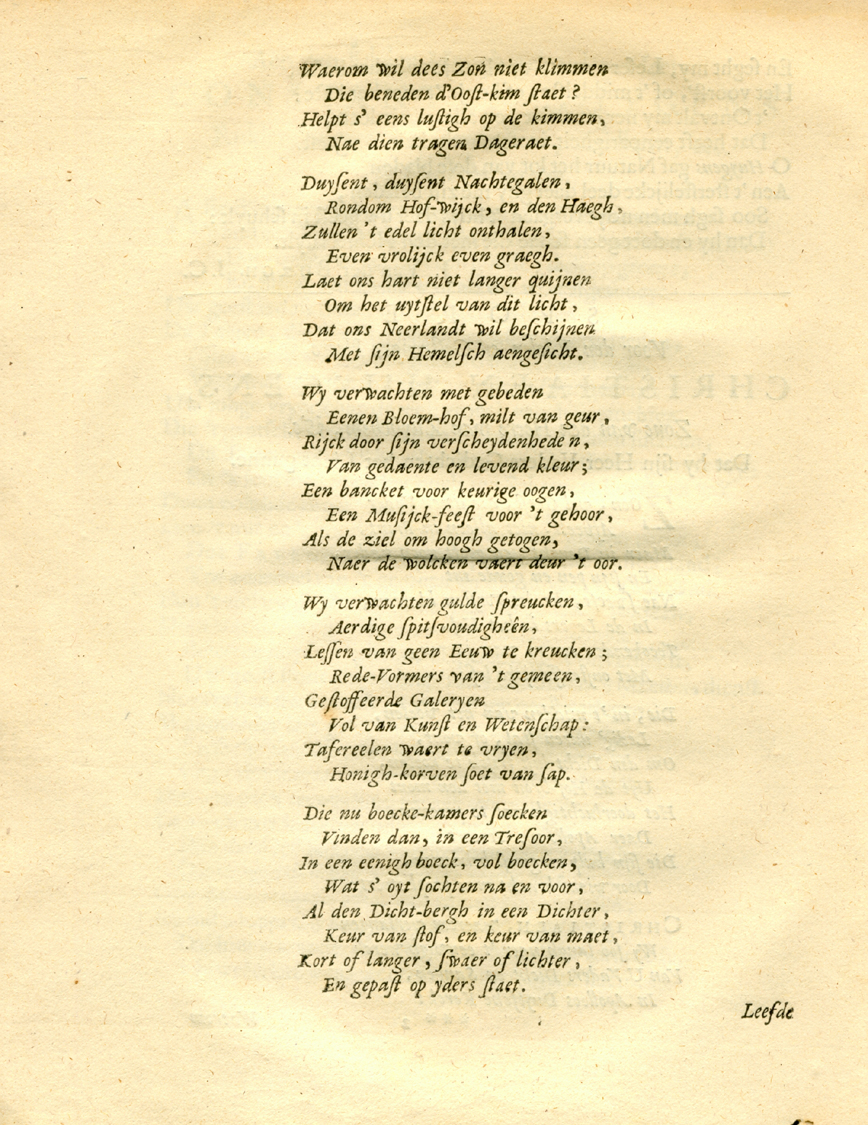 Waerom wil dees Zon niet klimmen
Die beneden d'Ooſt-kim ſtaet?
Helpt s' eens luſtigh op de kimmen,
Nae dien tragen Dageraet.
Duyſent, duyſent Nachtegalen,
Rondom Hof-wijck, en den Haegh,
Zullen 't edel licht onthalen,
Even vrolijck even graegh.
Laet ons hart niet langer quijnen
Om het uytſtel van dit licht,
Dat ons Neerlandt wil beſchijnen
Met ſijn Hemelſch aengeſicht.
Wy verwachten met gebeden
Eenen Bloem-hof, milt van geur,
Rijck door ſijn verſcheydenheden,
Van gedaente en levend kleur;
Een bancket voor keurige oogen,
Een Muſijck-feeſt voor 't gehoor,
Als de ziel om hoogh getogen,
Naer de wolcken vaert deur 't oor.
Wy verwachten gulde ſpreucken,
Aerdige ſpitſvoudigheên,
Leſſen van geen Eeuw te kreucken;
Rede-Vormers van 't gemeen,
Geſtoffeerde Galeryen
Vol van Kunſt en Wetenſchap:
Tafereelen waert te vryen,
Honigh-korven ſoet van ſap.
Die nu boecke-kamers ſoecken
Vinden dan, in een Treſoor,
In een eenigh boeck, vol boecken,
Wat s' oyt ſochten na en voor,
Al den Dicht-bergh in een Dichter,
Keur van ſtof, en keur van maet,
Kort of langer, ſwaer of lichter,
En gepaſt op yders ſtaet.
Leefde